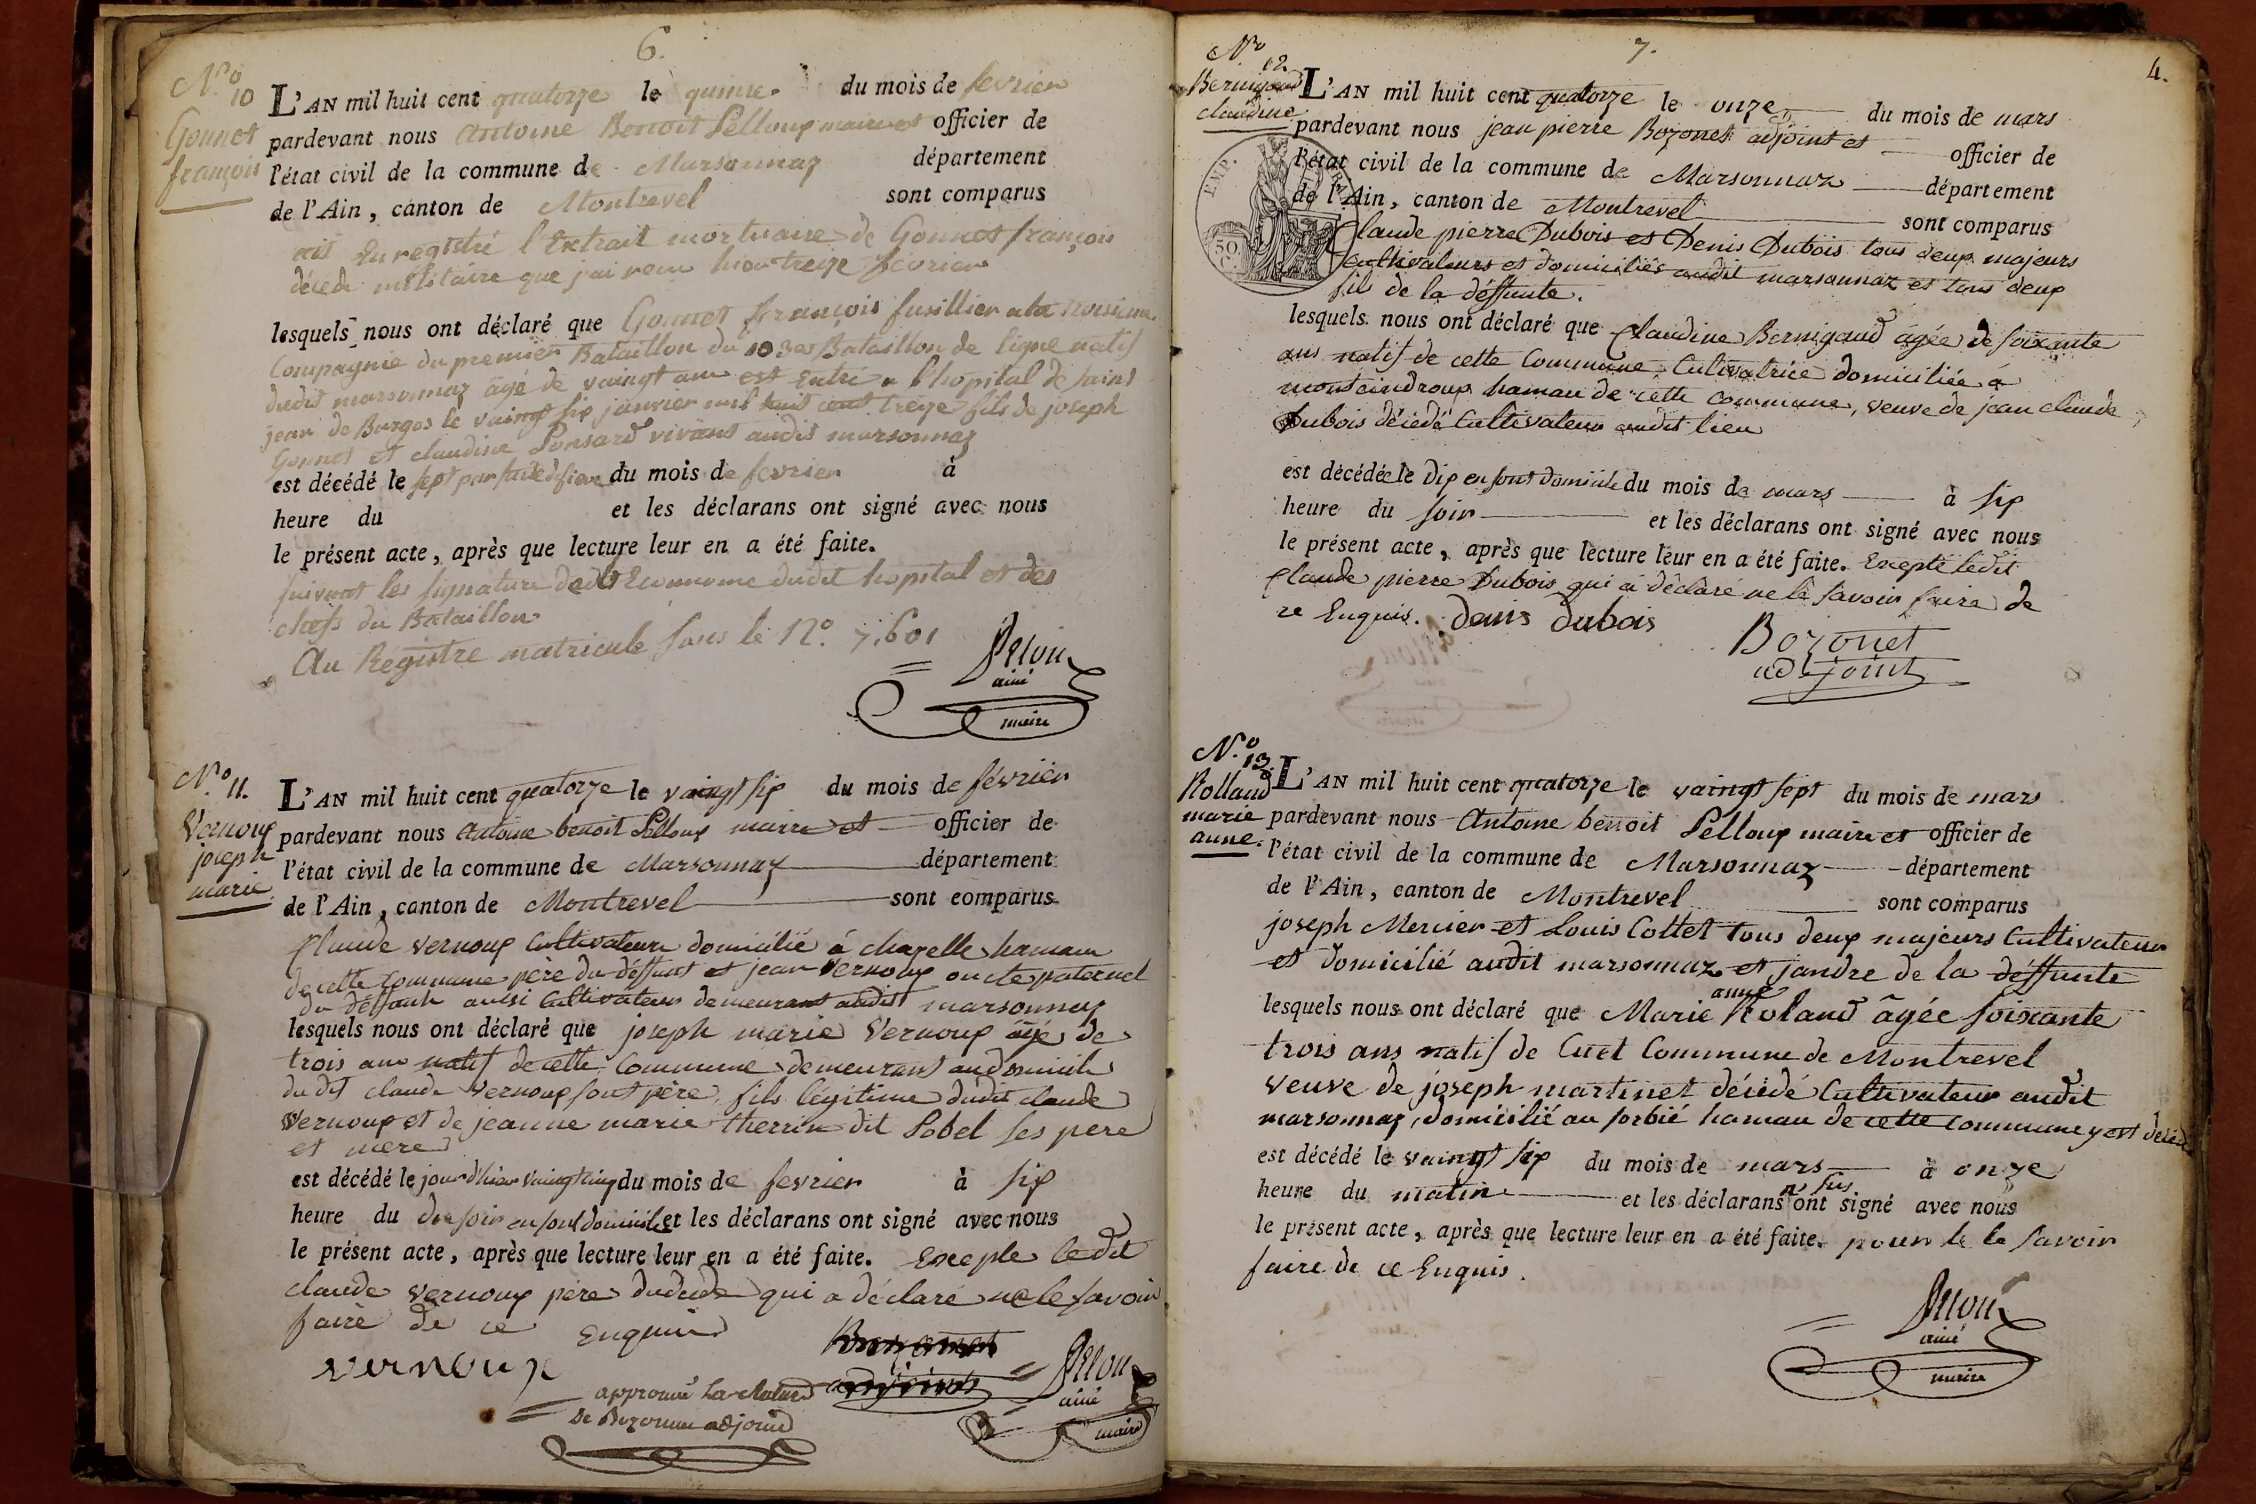 6.
N.º 10
Gonnet
françois
L'AN mil huit cent quatorze le quinze du mois de fevrier
pardevant nous Antoine Benoit Pelloux maire et officier de
l'état civil de la commune de Marsonnaz département
de l'Ain, canton de Montrevel sont comparus
Enregistré l'Extrait mortuaire de Gonnet françois
décédé militaire que j'ai recu hier treize fevrier
lesquels nous ont déclaré que Gonnet françois fusillier a la troisieme
Compagnie du premier Bataillon du 103es Bataillon de ligne natif
dudit marsonnaz âgé de vaingt ans est Entré a l'hopital de saint
jean de Burgos le vaingt six janvier mil huit cent treize fils de joseph
Gonnet et claudine Ponsard vivant audit marsonnaz
est décédé le sept par suite de fievre du mois de fevrier à
heure du et les déclarans ont signé avec nous
le présent acte, après que lecture leur en a été faite.
suivant les signature dudit Economme dudit hopital et des
chefs du Bataillon
Au Registre matricule sous le N.º 7,601
Pelloux
ainé
maire
N.º 11.
Vernoux
joseph
marie
L'AN mil huit cent quatorze le vaingt six du mois de février
pardevant nous Antoine benoit Pelloux maire et officier de
l'état civil de la commune de Marsonnaz département
de l'Ain, canton de Montrevel sont comparus
Claude Vernoux Cultivateur domicilié á chapelle hamau
de cette Commune père du déffunt et jean Vernoux oncle paternel
du déffunt aussi Cultivateur demeurant audit marsonnaz
lesquels nous ont déclaré que joseph marie Vernoux âgé de
trois ans natif de cette Commune demeurant au domicile
du dit claude Vernoux sont père, fils légitime dudit claude
Vernoux et de jeanne marie therrin dit Lobel ses pere
et mere
est décédé le jour d'hier vaingt cinq du mois de fevrier à six
heure du du soir en sont domicile et les déclarans ont signé avec nous
le présent acte, après que lecture leur en a été faite. Excepte le dit
claude Vernoux père qui a déclaré ne le savoir
faire de ce Enquis
vernoux
Bozonnet
adjoint
approuvé La Rature
De Bozonnet adjoint
Pelloux
ainé
maire
7.
4.
N.º 12
Bernigaud
claudine
EMP.
50
C.
L'AN mil huit cent quatorze le onze du mois de mars
pardevant nous jean pierre Bozonet adjoint et officier de
l'état civil de la commune de Marsonnaz département
de l'Ain, canton de Montrevel sont comparus
Claude pierre Dubois et Denis Dubois tous deux majeurs
Cultivateurs et domiciliés audit marsonnaz et tous deux
fils de la déffunte.
lesquels nous ont déclaré que Claudine Bernigaud âgée de soixante
ans natif de cette Commune, Cultivatrice domiciliée á
montceindroux hamau de cette Commune, veuve de jean claude
Dubois décédé Cultivateur audit lieu
est décédée le dix en sont domicile du mois de mars à six
heure du soir et les déclarans ont signé avec nous
le présent acte, après que lecture leur en a été faite. Excepté ledit
Claude pierre Dubois qui a déclaré ne le savoir faire de
ce Enquis. denis dubois
Bozonet
adjoint
N.º 13.
Rolland
marie
anne.
L'AN mil huit cent quatorze le vaingt sept du mois de mars
pardevant nous Antoine benoit Pelloux maire et officier de
l'état civil de la commune de Marsonnaz département
de l'Ain, canton de Montrevel sont comparus
joseph Mercier et Louis Cottet tous deux majeurs Cultivateur
et domicilié audit marsonnaz et jandre de la déffunte
lesquels nous ont déclaré que Marie anne Roland âgée soixante
trois ans natif de Cuet Commune de Montrevel
veuve de joseph martinet décédé Cultivateur audit
marsonnaz, domicilié au sorbié hamau de cette commune y est décédé
est décédé le vaingt six du mois de mars à onze
heure du matin et les déclarans n'ont signé avec nous
le présent acte, après que lecture leur en a été faite. pour le le savoir
faire de ce Enquis.
Pelloux
ainé
maire